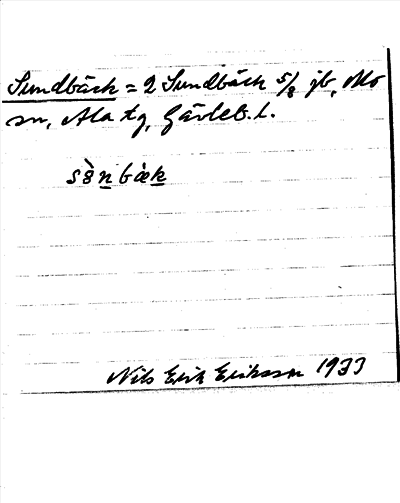 Sundbäck = 2 Sundbäck 5/8 jb, Mo
sn, Ala tg, Gävleb. l.
Nils Erik Eriksson 1933